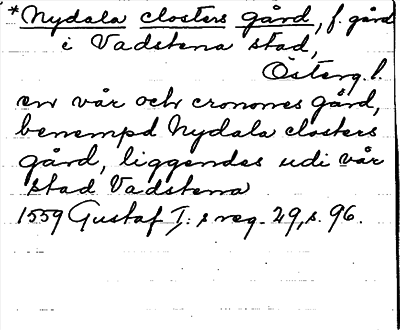 *Nydala closters gård, f. gård
i Vadstena stad,
Österg. l.
en vår och cronones gård,
benempd Nydala closters
gård, liggendes udi vår
stad Vadstena
1559 Gustaf I: s reg. 29, s. 96.